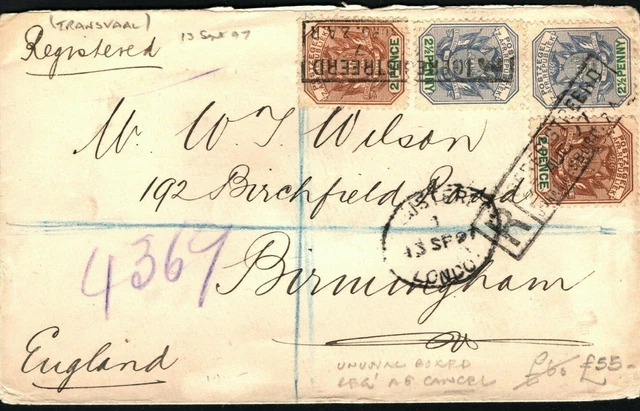 (TRANSVAAL)
Registered
13 Sept 97
2 PENCE
2½ PENNY
2½ PENNY
2 PENCE
Mr. W. T. Wilson
192 Birchfield Road
R
13 SP 97
LONDO
4367
Birmingham
England
UNUSUAL BOXED
REG' AS CANCEL
£60 £55-